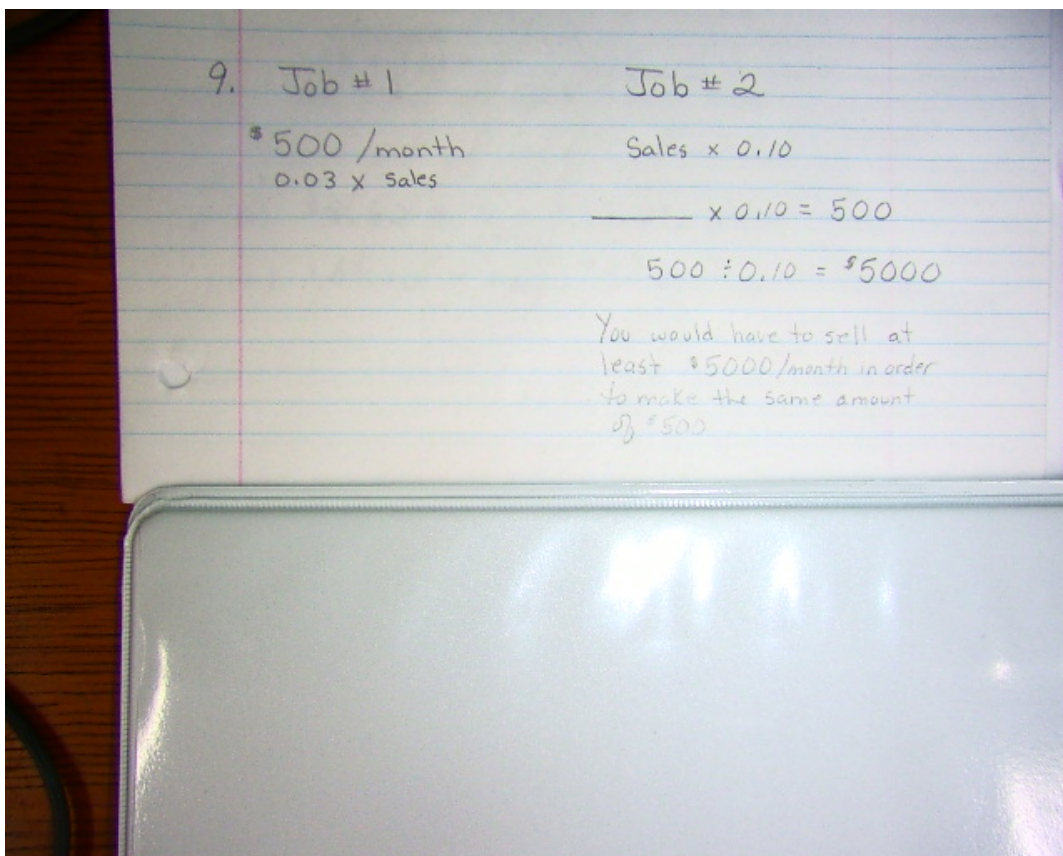 9. Job # 1
$500 /month
0.03 x Sales
Job # 2
Sales x 0.10
______ x 0.10 = 500
500 ÷ 0.10 = $5000
You would have to sell at
least $5000/month in order
to make the same amount
of $500